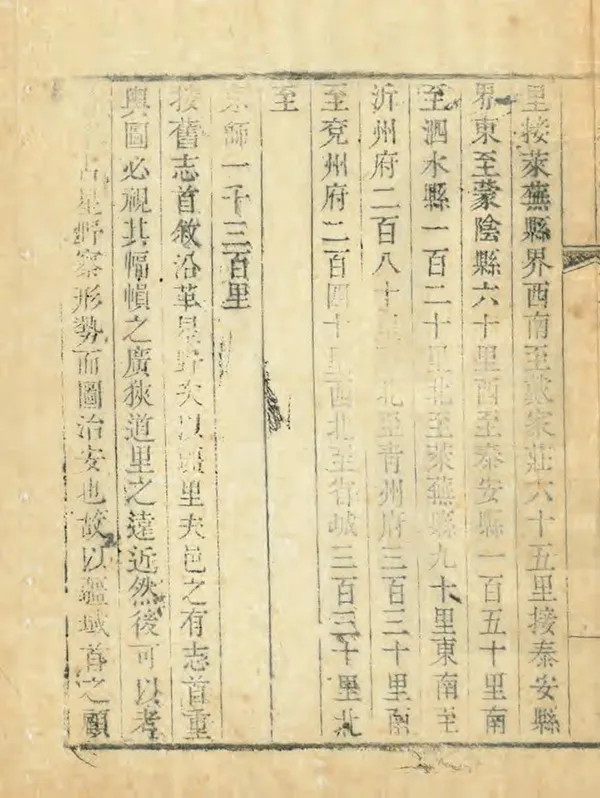 里接萊蕪縣界西南至戴家莊六十五里接泰安縣
界東至蒙陰縣六十里西至泰安縣一百五十里南
至泗水縣一百二十里北至萊蕪縣九十里東南至
沂州府二百八十里北至青州府三百三十里西南
至兗州府二百四十里西北至省城三百三十里北
至
京師一千三百里
按舊志首敘沿革星野次以疆里夫邑之有志首重
輿圖必視其幅幀之廣狹道里之遠近然後可以考
占星野察形勢而圖治安也故以疆域首之願